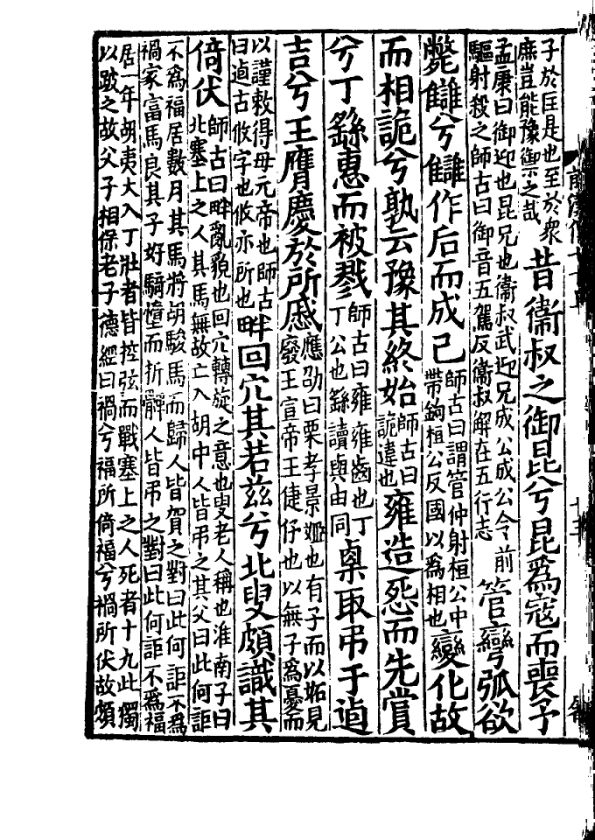 子於匡是也至於衆
庶豈能豫禦之哉
昔衞叔之御昆兮昆爲寇而喪予
孟康曰御迎也昆兄也衞叔武迎兄成公成公令前
驅射殺之師古曰御音五駕反衞叔解在五行志
管彎弧欲
斃讎兮讎作后而成己
師古曰謂管仲射桓公中
帶鉤桓公反國以爲相也
變化故
而相詭兮孰云豫其終始
師古曰
詭違也
雍造怨而先賞
兮丁繇惠而被戮
師古曰雍雍齒也丁
丁公也繇讀與由同
㮚取弔于逌
吉兮王膺慶於所慼
應劭曰栗孝景姬也有子而以妬見
廢王宣帝王倢伃也以無子爲憂而
以謹敕得母元帝也師古
曰逌古攸字也攸亦所也
畔回宂其若茲兮北叟頗識其
倚伏
師古曰畔亂貌也回宂轉旋之意也叟老人稱也淮南子曰
北塞上之人其馬無故亡入胡中人皆弔之其父曰此何詎
不爲福居數月其馬將胡駿馬而歸人皆賀之對曰此何詎不爲
禍家富馬良其子好騎墮而折髀人皆弔之對曰此何詎不爲福
居一年胡夷大入丁壯者皆控弦而戰塞上之人死者十九此獨
以跛之故父子相保老子德經曰禍兮福所倚福兮禍所伏故頗